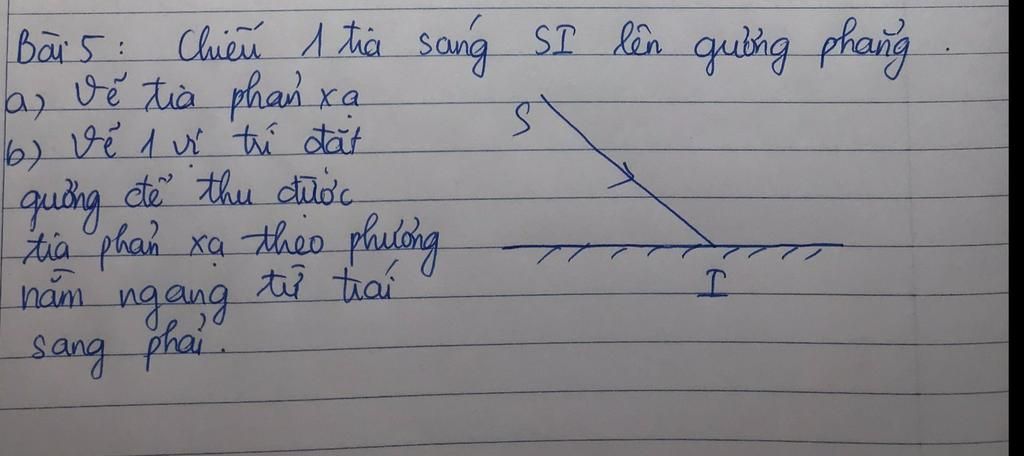 Bài 5: Chiếu 1 tia sáng SI lên gương phẳng.
a) Vẽ tia phản xạ
S
b) Vẽ 1 vị trí đặt
gương để thu được
tia phản xạ theo phương
nằm ngang từ trái
I
sang phải.